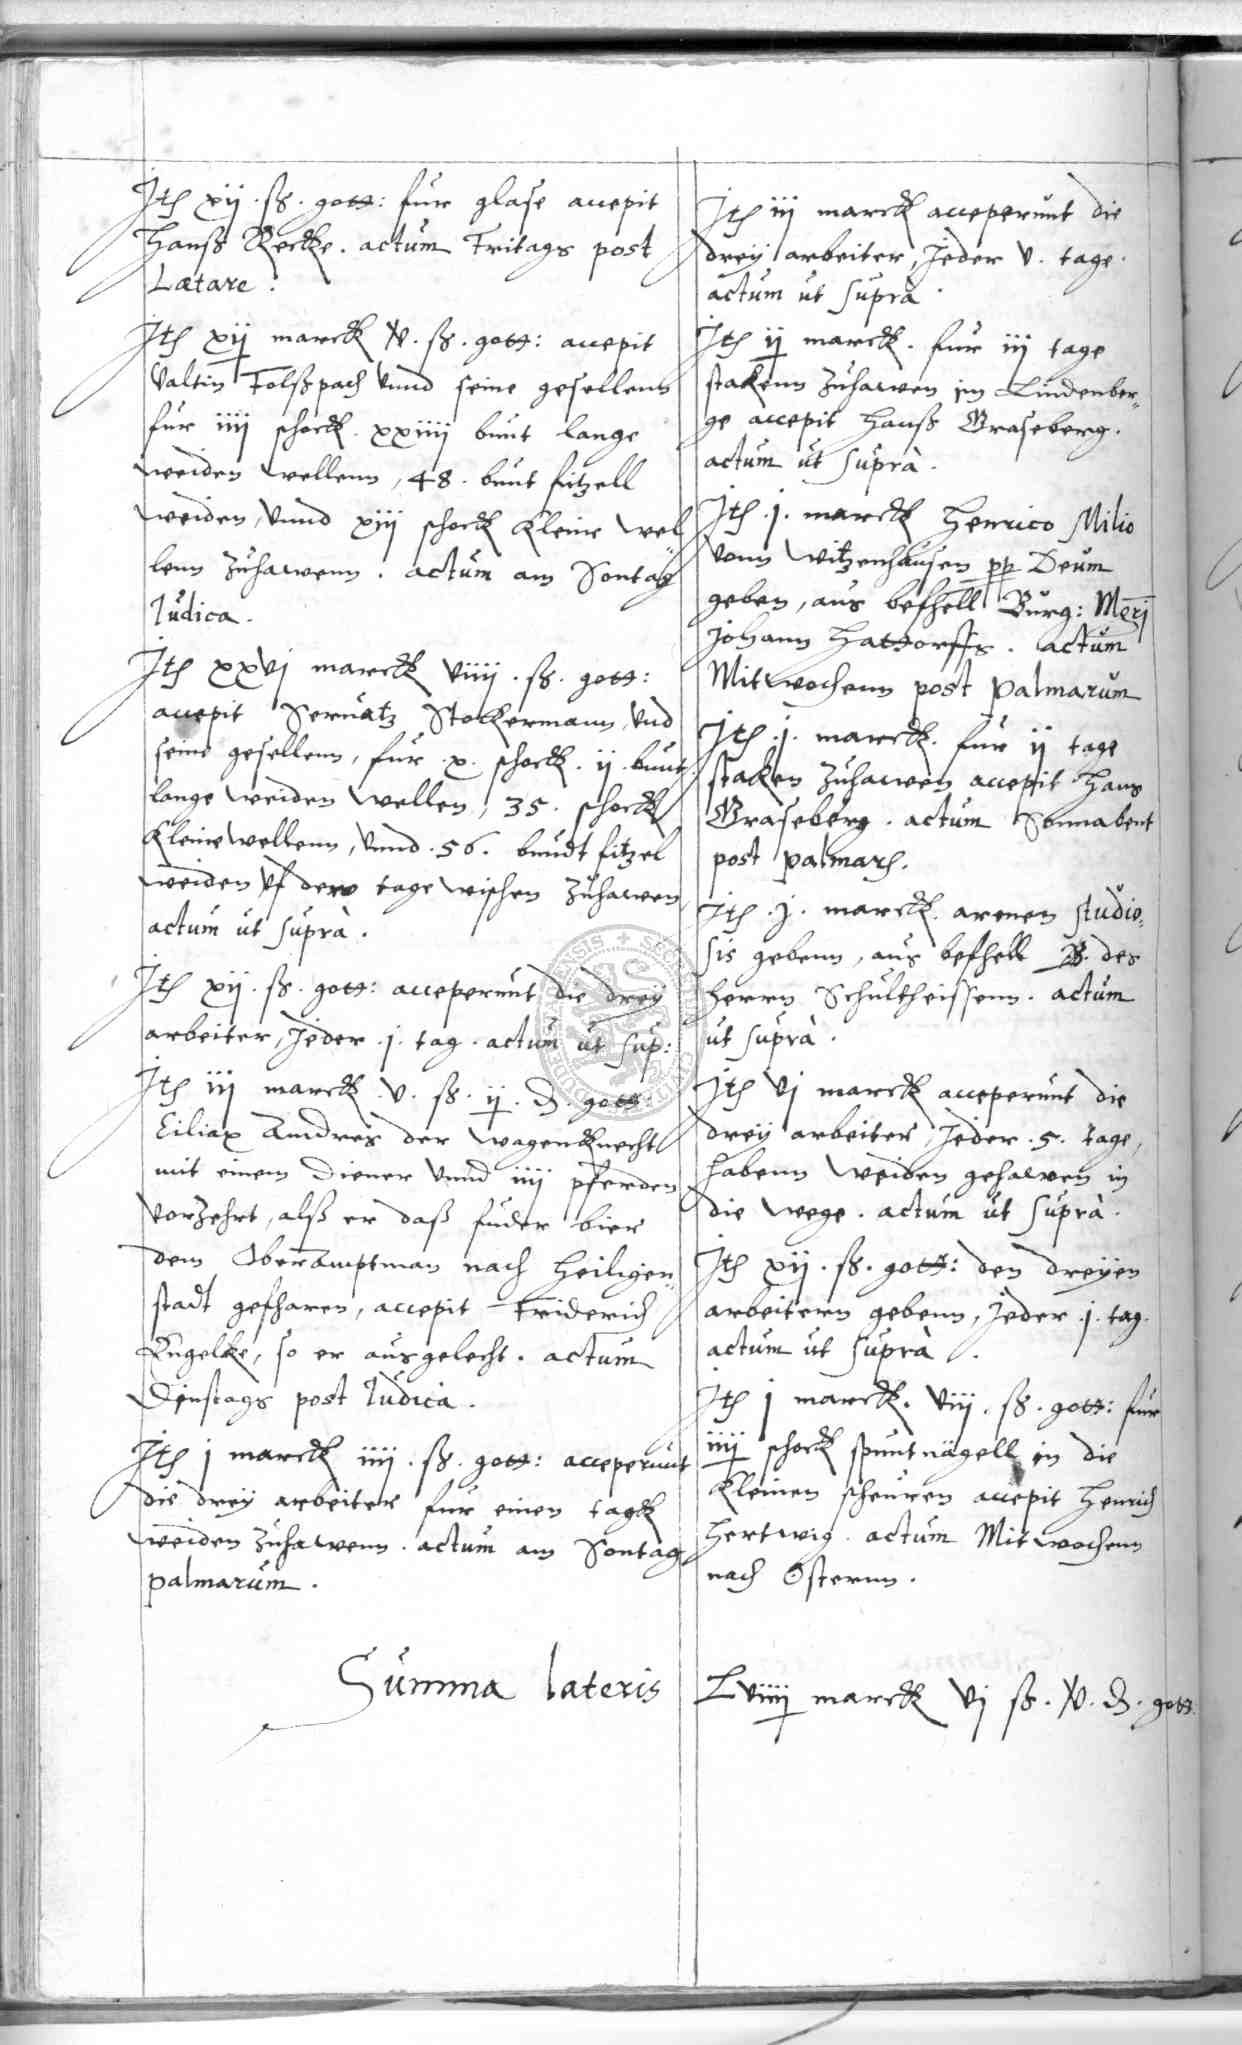 Ite xij . ß . gott: fur glase accepit
Hanß Recke . actum Fritags post
Lætare .
Ite xij marck v . ß . gott: accepit
Valtin Folßpach vnnd seine gesellenn
fur iiij schock . xxiiij bunt lange
weiden wellenn , 48 . bunt fitzell
weiden, vnnd xiij schock kleine wel
lenn zuhawenn . actum am Sontag
Iudica .
Ite xxvj marck viiij . ß . gott:
accepit Seruatz Stockermann vnd
seine gesellenn, fur . x . schock . ij . bunt
lange weiden wellen, 35 . schock
kleine wellenn, vnnd . 56 . bundt fitzel
weiden vf der tage wischen zuhawen
actum ut suprà .
Ite xij . ß . gott: acceperunt die drey
arbeiter, Jeder . j . tag . actum ut sup:
Ite iij marck . v . ß . ij . d . gott:
Ciliax Andres der wagenknecht
mit einem diener vnnd iiij pferden
vorzehrt, alß er daß fuder bier
dem Oberamptman nach Heiligen„
stadt gefharen, accepit Friderich
Engelke, so er ausgelecht . actum
Dinstags post Iudica .
Ite j marck iiij . ß . gott: acceperunt
die drey arbeiter fur einen tagk
weiden zuhawenn . actum am Sontag
palmarum .
Summa lateris
Ite iij marck acceperunt die
drey arbeiter, Jeder v . tage .
actum ut suprà .
Ite ij marck . fur iij tage
stakenn zuhawen im Lindenber„
ge accepit Hanß Graseberg .
actum ut suprà .
Ite . j . marck Henrico Milio
vonn Witzenhausen pp Deum
geben, aus befhell Burg: Mgri
Johann Hattorffs . actum
Mitwochenn post Palmarum
Ite . j . marck . fur ij tage
staken zuhawen accepit Hans
Graseberg . actum Sonnabent
post palmar .
Ite . j . marck . armen studio„
sis gebenn, aus befhell B . des
Herrn Schultheissenn . actum
ut suprà .
Ite vj marck acceperunt die
drey arbeiter, Jeder . 5 . tage,
habenn weiden gehawen in
die wege . actum ut suprà .
Ite xij . ß . gott: den dreyen
arbeitern gebenn, Jeder . j . tag .
actum ut suprà .
Ite j marck . viij . ß . gott: fur
iiij schock spuntnägell in die
kleinen scheuren accepit Henrich
Hertwig . actum Mitwochenn
nach Osternn .
Lviiij marck vj ß . v . d . gott.